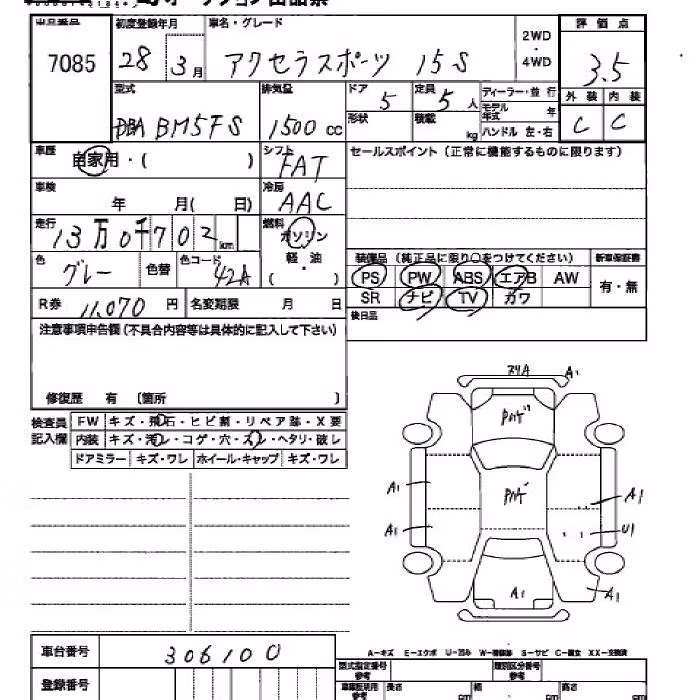 出品番号 初度登録年月 車名・グレード 2WD・4WD 評価点
7085 28 3月 アクセラスポーツ 15S 3.5
型式 排気量 ドア 5 定員 5人 ディーラー・並行 外装 内装
DBA BM5FS 1500cc 形状 積載 kg モデル年式 年 C C
ハンドル 左・右
車歴 自家用・( ) シフト FAT セールスポイント(正常に機能するものに限ります)
車検 年 月( 日) 冷房 AAC
走行 13万0千702km 燃料 ガソリン
色 グレー 色替 色コード 42A 軽・油 ( )
装備品(純正品に限り○をつけてください) 新車保証書
PS PW ABS エアB AW 有・無
SR ナビ TV カワ
R券 11,070円 名変期限 月 日 後日品
注意事項申告欄(不具合内容等は具体的に記入して下さい)
修復歴 有 〔箇所 〕
検査員記入欄 FW キズ・飛石・ヒビ割・リペア跡・X要
内装 キズ・汚レ・コゲ・穴・スレ・ヘタリ・破レ
ドアミラー キズ・ワレ ホイール・キャップ キズ・ワレ
A1
A1 A1
A1 U1
A1 A1
A-キズ E-エクボ U-凹み W-補修跡 S-サビ C-腐食 XX-交換済
車台番号 306100
型式指定番号 参考 類別区分番号 参考
登録番号
長さ cm 幅 cm 高さ cm